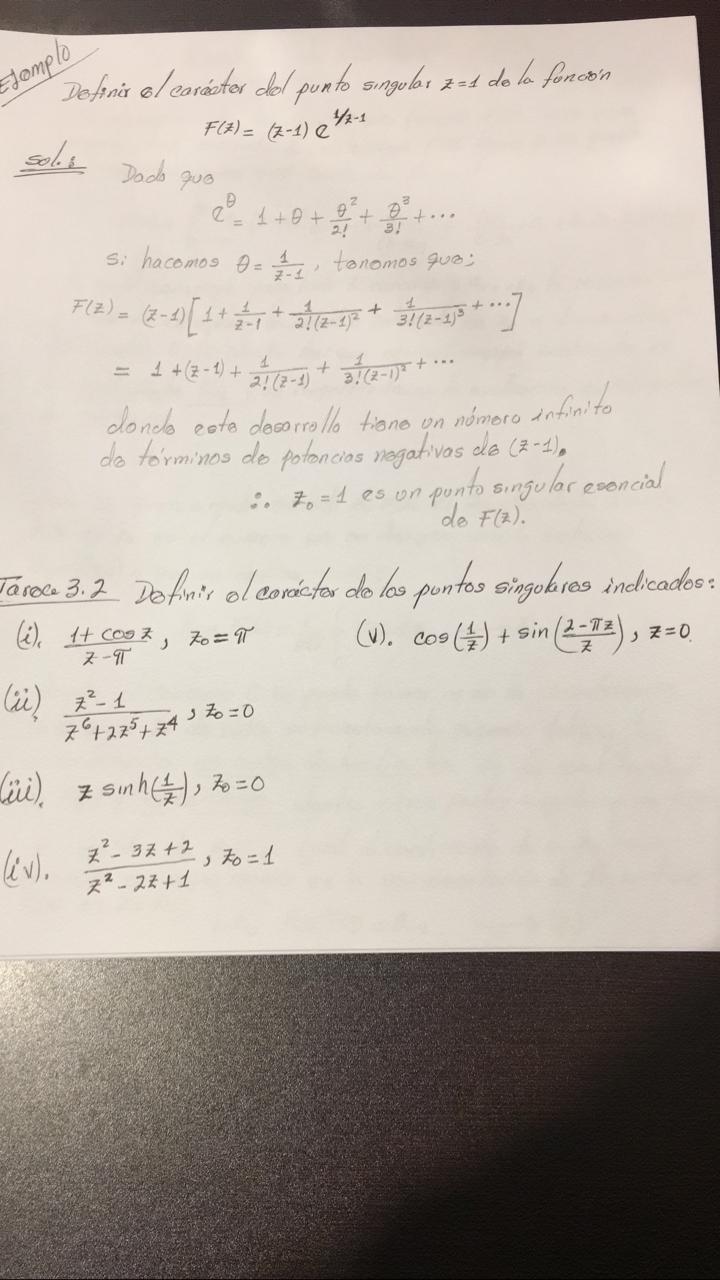 Ejemplo
Definir el carácter del punto singular z=1 de la función
F(z) = (z-1) e^{1/z-1}
Sol.:
Dado que
e^θ = 1 + θ + θ²/2! + θ³/3! + ...
Si hacemos θ = 1/(z-1), tenemos que:
F(z) = (z-1)[1 + 1/(z-1) + 1/(2!(z-1)²) + 1/(3!(z-1)³) + ...]
= 1 + (z-1) + 1/(2!(z-1)) + 1/(3!(z-1)²) + ...
donde este desarrollo tiene un número infinito
de términos de potencias negativas de (z-1).
∴ z₀ = 1 es un punto singular esencial
de F(z).
Tarea 3.2 Definir el carácter de los puntos singulares indicados:
(i). (1 + cos z)/(z - π), z₀ = π
(v). cos(1/z) + sin((2-πz)/z), z=0.
(ii). (z² - 1)/(z⁶ + 2z⁵ + z⁴), z₀=0
(iii). z sinh(1/z), z₀=0
(iv). (z² - 3z + 2)/(z² - 2z + 1), z₀=1